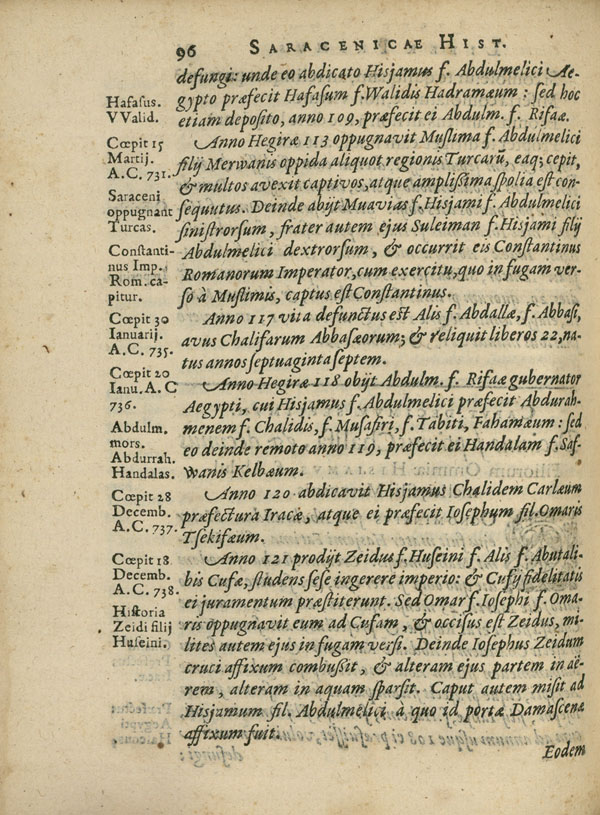 96 SARACENICAE HIST.
defungi: unde eo abdicato Hisjamus f. Abdulmelici Ae-
gypto præfecit Hafasum f. Walidis Hadramæum : sed hoc
etiam deposito, anno 109, præfecit ei Abdulm. f. Rifaæ.
Anno Hegiræ 113 oppugnavit Muslima f. Abdulmelici
filij Merwanis oppida aliquot regionis Turcarũ, eaq; cepit,
& multos avexit captivos, atque amplissima spolia est con-
sequutus. Deinde abijt Muavias f. Hisjami f. Abdulmelici
sinistrorsum, frater autem ejus Suleiman f. Hisjami filij
Abdulmelici dextrorsum, & occurrit eis Constantinus
Romanorum Imperator, cum exercitu, quo in fugam ver-
so à Muslimis, captus est Constantinus.
Anno 117 vita defunctus est Alis f. Abdallæ, f. Abbasi,
avus Chalifarum Abbasæorum; & reliquit liberos 22, na-
tus annos septuaginta septem.
Anno Hegiræ 118 obijt Abdulm. f. Rifaæ gubernator
Aegypti, cui Hisjamus f. Abdulmelici præfecit Abdurah-
menem f. Chalidis, f. Musafiri, f. Tabiti, Fahamæum : sed
eo deinde remoto anno 119, præfecit ei Handalam f. Saf-
wanis Kelbæum.
Anno 120 abdicavit Hisjamus Chalidem Carlæum
præfectura Iracæ, atque ei præfecit Iosephum fil. Omaris
Tsekifæum.
Anno 121 prodijt Zeidus f. Huseini f. Alis f. Abutali-
bis Cufæ, studens sese ingerere imperio: & Cufij fidelitatis
ei juramentum præstiterunt. Sed Omar f. Iosephi f. Oma-
ris oppugnavit eum ad Cufam, & occisus est Zeidus, mi-
lites autem ejus in fugam versi. Deinde Iosephus Zeidum
cruci affixum combussit, & alteram ejus partem in aë-
rem, alteram in aquam sparsit. Caput autem misit ad
Hisjamum fil. Abdulmelici à quo id portæ Damascenæ
affixum fuit.
Eodem
Hafasus.
VValid.
Cœpit 15
Martij.
A.C. 731.
Saraceni
oppugnant
Turcas.
Constanti-
nus Imp.
Rom. ca-
pitur.
Cœpit 30
Ianuarij.
A.C. 735.
Cœpit 20
Ianu. A. C
736.
Abdulm.
mors.
Abdurrah.
Handalas.
Cœpit 28
Decemb.
A.C. 737.
Cœpit 18
Decemb.
A.C. 738.
Historia
Zeidi filij
Huseini.